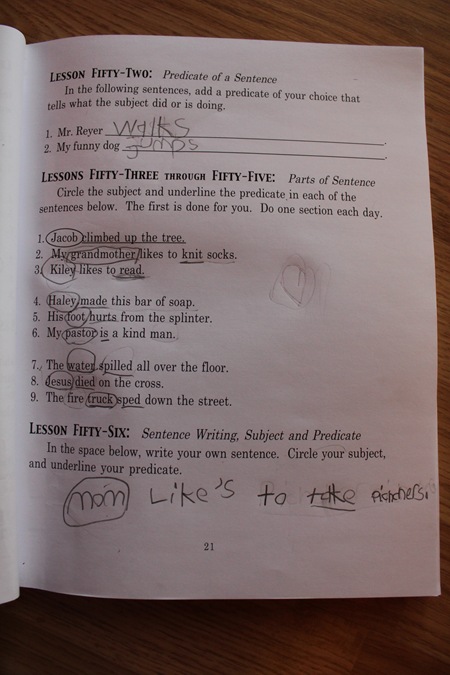 LESSON FIFTY-TWO: Predicate of a Sentence
In the following sentences, add a predicate of your choice that
tells what the subject did or is doing.
1. Mr. Reyer walks.
2. My funny dog jumps.
LESSONS FIFTY-THREE THROUGH FIFTY-FIVE: Parts of Sentence
Circle the subject and underline the predicate in each of the
sentences below. The first is done for you. Do one section each day.
1. Jacob climbed up the tree.
2. My grandmother likes to knit socks.
3. Kiley likes to read.
4. Haley made this bar of soap.
5. His foot hurts from the splinter.
6. My pastor is a kind man.
7. The water spilled all over the floor.
8. Jesus died on the cross.
9. The fire truck sped down the street.
LESSON FIFTY-SIX: Sentence Writing, Subject and Predicate
In the space below, write your own sentence. Circle your subject,
and underline your predicate.
mom Like's to take
21